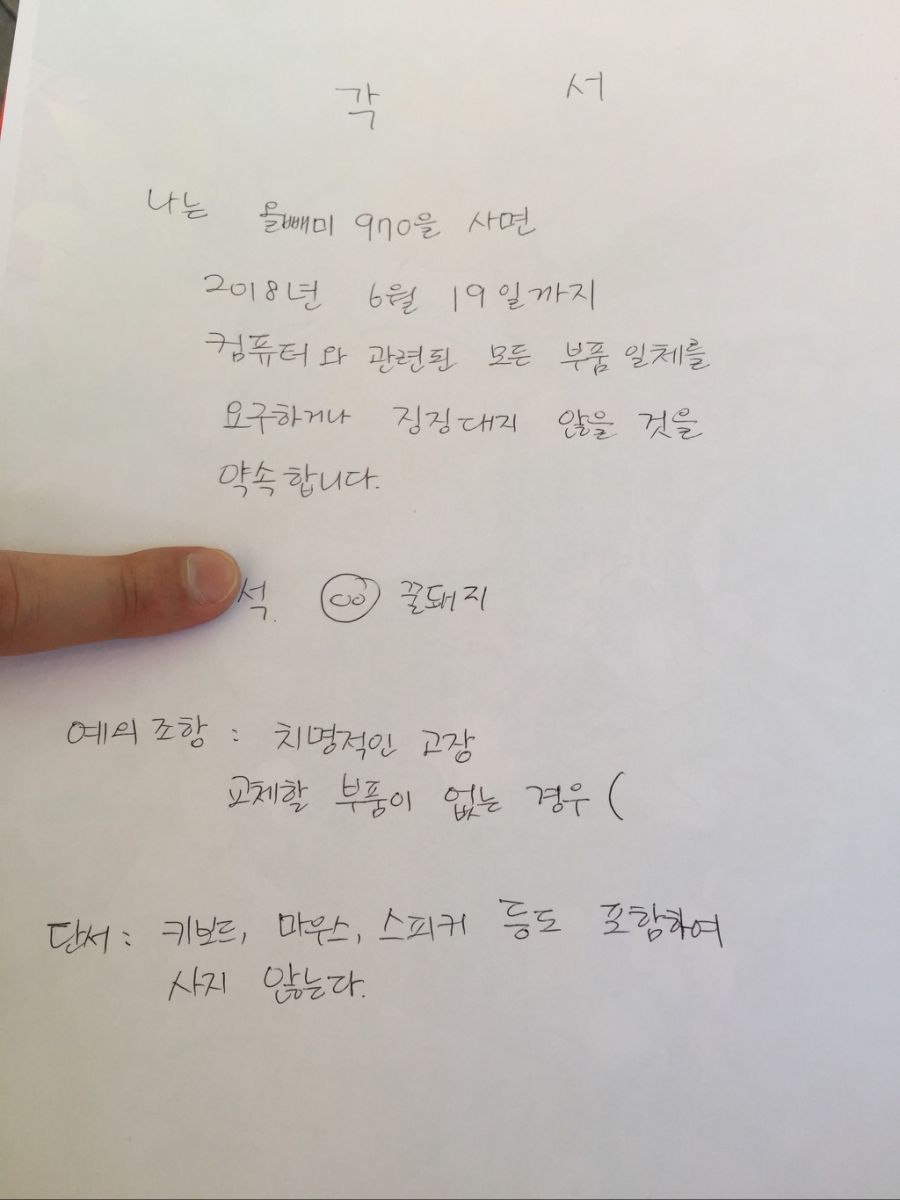 각 서
나는 올빼미 970을 사면
2018년 6월 19일까지
컴퓨터와 관련된 모든 부품 일체를
요구하거나 징징대지 않을 것을
약속합니다.
석. 꿀돼지
예외 조항 : 치명적인 고장
교체할 부품이 없는 경우 (
단서 : 키보드, 마우스, 스피커 등도 포함하여
사지 않는다.